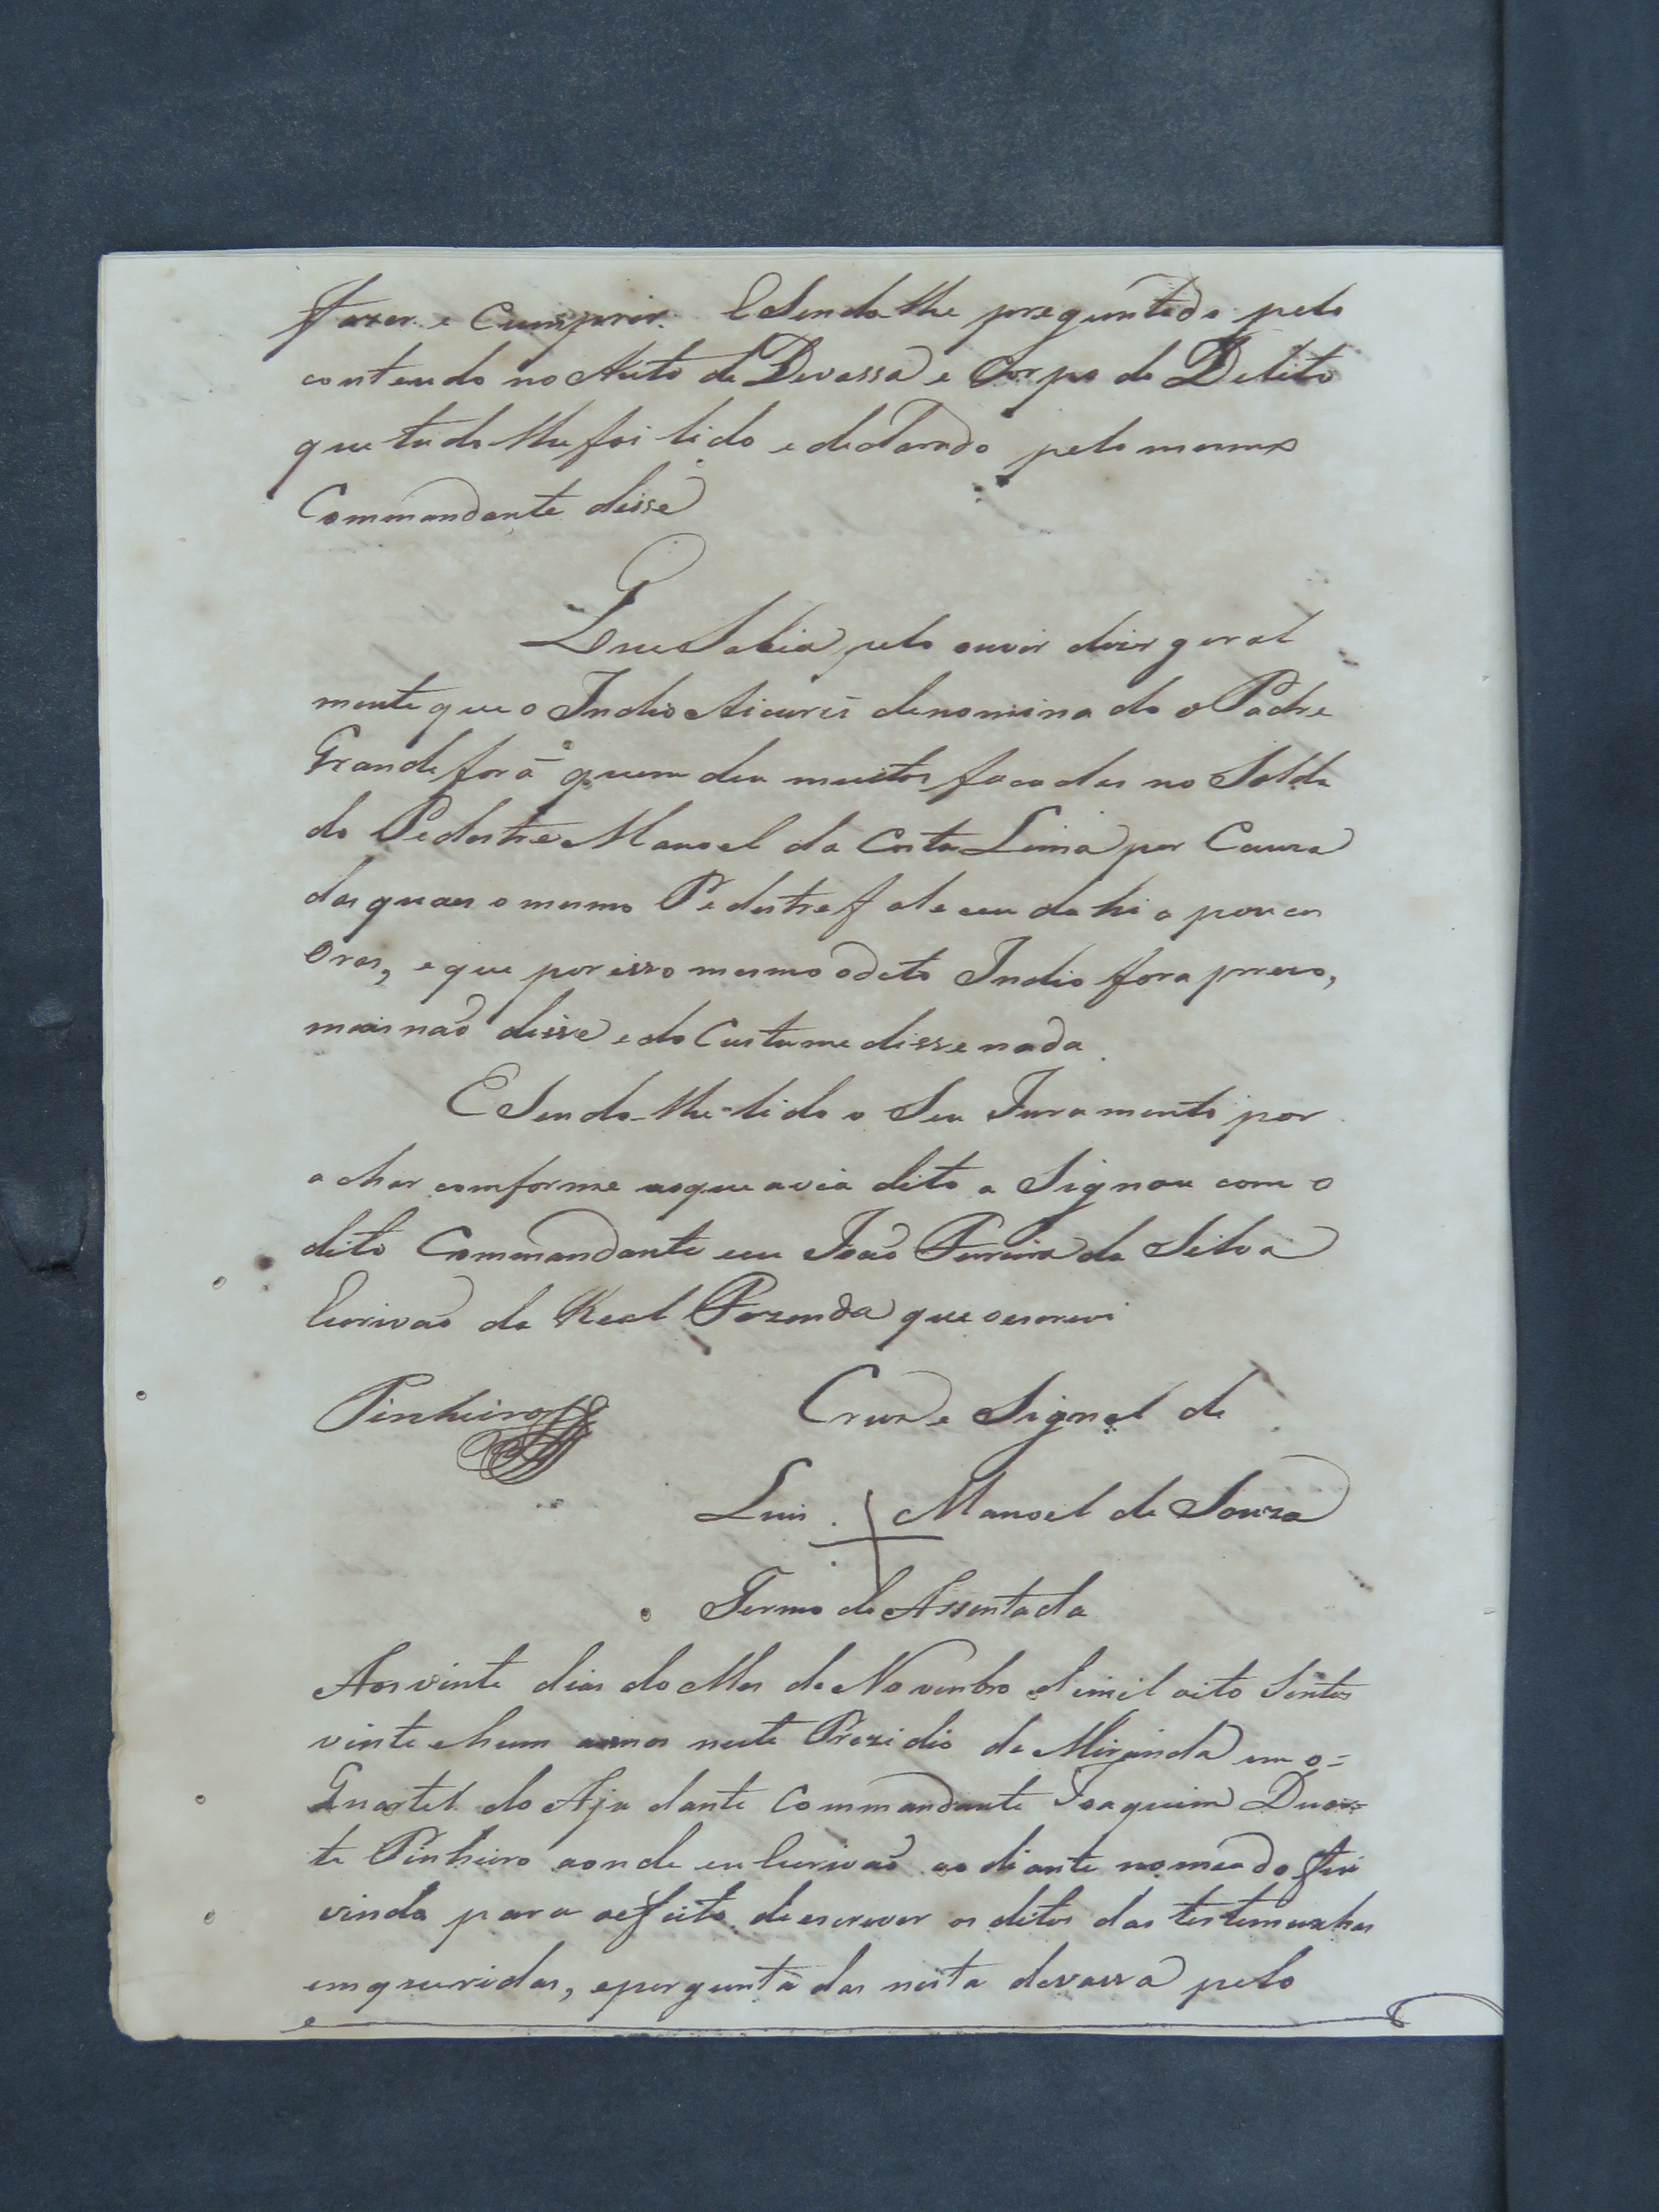 fazer e Cumprir. E Sendo lhe preguntado pelo
conteudo no Auto de Devassa e Corpo de Delito
que tudo lhe foi lido e declarado pelo mesmo
Commandante disse
Que Sabia pelo ouvir dizer geral
mente que o Indio Aicurú denominado o Padre
Grande fora quem deu muitas facadas no Solda
do Pedestre Manoel da Costa Lima por Cauza
das quaes o mesmo Pedestre faleceu dahi a poucas
Oras, e que por isso mesmo o dito Indio fora prezo,
mais naõ disse e do Custume disse nada.
E Sendo-lhe-lido o Seu Juramento por
achar comforme aoque avia dito a Signou com o
dito Commandante eeu Joaõ Ferreira da Silva
Escrivaõ da Real Fazenda que oescrevi
Pinheiro
Cruz e Signal de
Luis + Manoel de Souza
Termo de Assentada
Aos vinte dias do Mes de Novenbro d'emil oito Sentos
vinte ehum annos neste Prezidio de Miranda em o=
Quartel do Ajudante Commandante Joaquim Duar=
te Pinheiro aonde eu Escrivaõ ao diante nomeado fui
vindo para oefeito de escrever os ditos das testemunhas
emqueridas, eperguntadas nesta devassa pelo